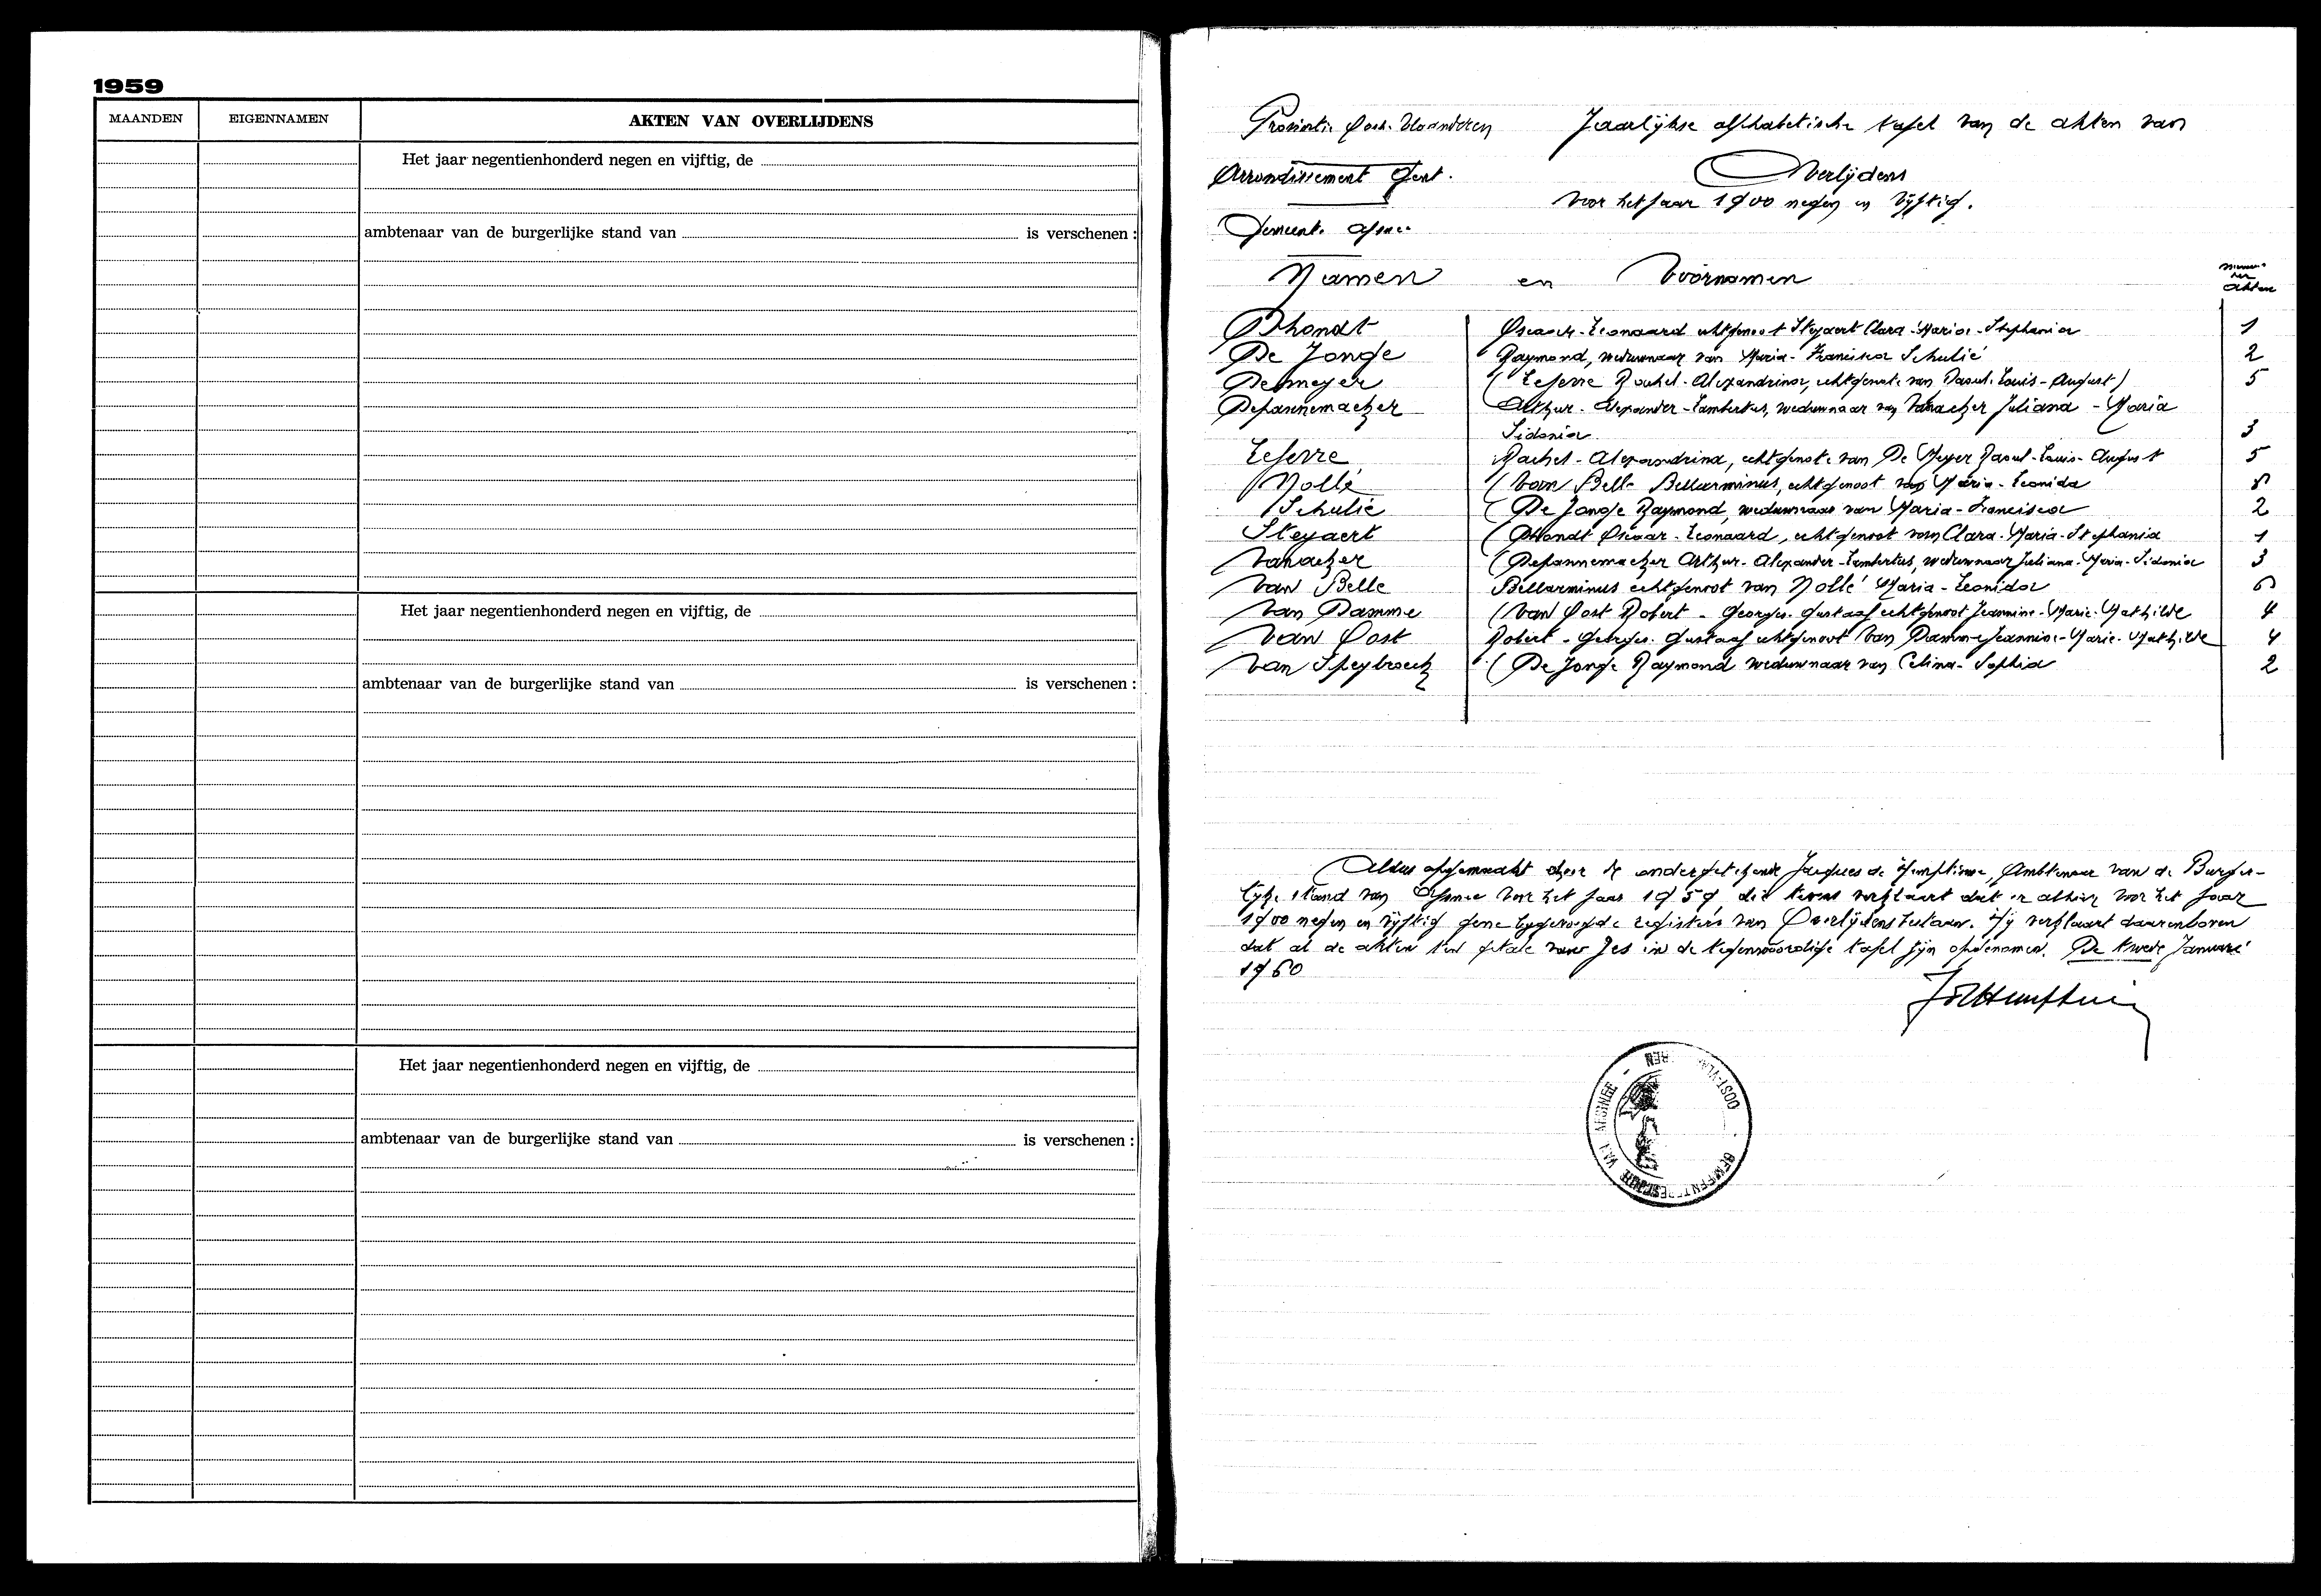 1959
MAANDEN EIGENNAMEN AKTEN VAN OVERLIJDENS
Het jaar negentienhonderd negen en vijftig, de
ambtenaar van de burgerlijke stand van is verschenen :
Het jaar negentienhonderd negen en vijftig, de
ambtenaar van de burgerlijke stand van is verschenen :
Het jaar negentienhonderd negen en vijftig, de
ambtenaar van de burgerlijke stand van is verschenen :
Provintie Oost-Vlaanderen Jaarlijkse alfhabetische tafel van de akten van
Arrondissement Gent. Overlijdens
voor het jaar 1900 negen en vijftig.
Gemeente Afsnee
Namen en Voornamen
der Akten
Dhondt Oscar-Leonaard echtgenoot Steyaert Clara-Maria-Stephania 1
De Jonge Raymond, weduwnaar van Maria-Francisca Schulié 2
Demeyer ( Lefevre Rachel-Alexandrina, echtgenote van Raoul-Louis-August) 5
Depannemaeker Arthur-Alexander-Lambertus, weduwnaar van Vanacker Juliana-Maria
Sidonia 3
Lefevre Rachel-Alexandrina, echtgenote van De Meyer Raoul-Louis-August 5
Nollé ( Van Belle Bellarminus, echtgenoot van Maria-Leonida
Schulié ( De Jonge Raymond, weduwnaar van Maria-Francisca 2
Steyaert ( Dhondt Oscar-Leonaard, echtgenoot van Clara-Maria-Stephania 1
Vanacker ( Depannemaeker Arthur-Alexander-Lambertus, weduwnaar Juliana-Maria-Sidonia 3
Van Belle Bellarminus echtgenoot van Nollé Maria-Leonida 6
Van Damme ( Van Oost Robert-Georges-Gustaaf echtgenoot Jeannine-Marie-Mathilde 4
Van Oost Robert-Georges-Gustaaf echtgenoot Van Damme Jeannine-Marie-Mathilde 4
Van Speybroeck ( De Jonge Raymond weduwnaar van Celina-Sophia 2
Aldus opgemaakt door de ondergetekende Jacques de Hemptinne, Ambtenaar van de Burger-
lijke stand van Afsnee voor het jaar 1959, die tevens verklaart dat er alhier voor het jaar
1900 negen en vijftig gene bijgevoegde registers van Overlijdens bestaan. Hij verklaart daarenboven
dat al de akten ten getale van zes in de tegenwoordige tafel zijn opgenomen. De tweede Januari
1960